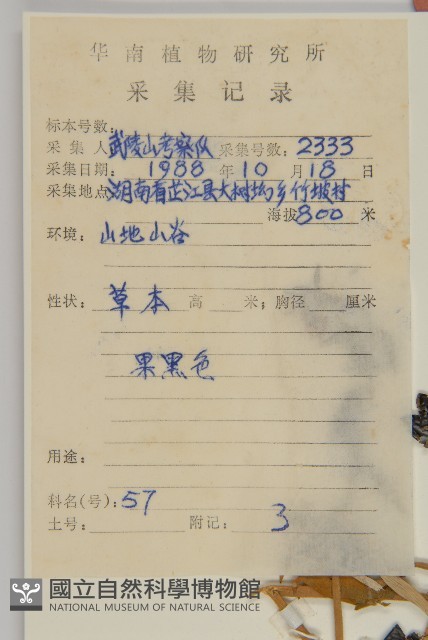 华南植物研究所
采集记录
标本号数：
采集人 武陵山考察队 采集号数：2333
采集日期：1988年10月18日
采集地点 湖南省芷江县大树坳乡竹坡村
海拔800米
环境：山地山谷
性状：草本 高 米；胸径 厘米
果黑色
用途：
科名(号)：57
土号： 附记： 3
國立自然科學博物館
NATIONAL MUSEUM OF NATURAL SCIENCE